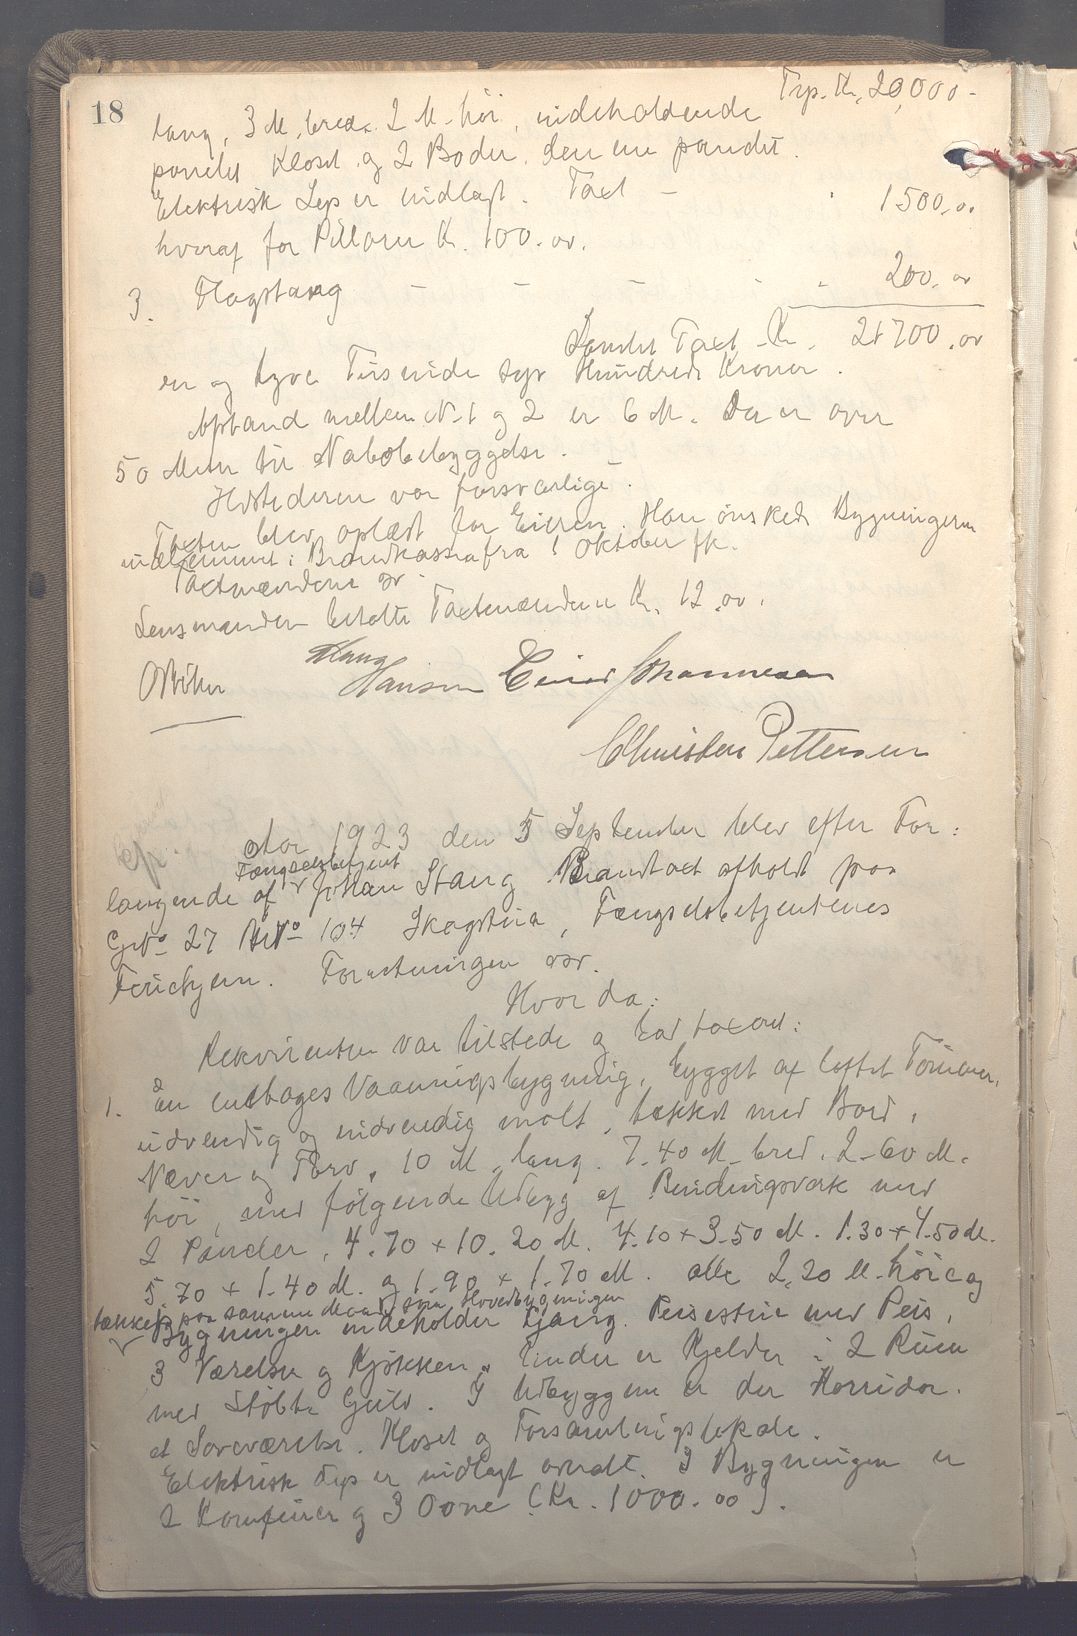 18
Trp. Kr. 20,000 -
lang, 3 M. bred. 2 M. höi, indeholdende
panelet Kloset og 2 Boder, den ene pandet.
Elektrisk Lys er indlagt. Taxt - 1500,00
hvoraf for Pillarer Kr. 100.00.
3. Flagstang - - - - 200,00
Samlet Taxt Kr. 21700,00
en og tyve Tusinde syv Hundrede Kroner.
Afstand mellem No 1 og 2 er 6 M. Der er over
50 Meter til Nabobebyggelse.
Ildstederne var forsvarlige.
Taxten blev oplæst for Eieren. Han önskede Bygningerne
indlemmet i Brandkassen fra 1 Oktober fk.
Taxtmændene
Lensmanden betalte Taxtmændene Kr. 12.00.
Hans
Hansen Einar Johannessen
Christen Pettersen
Aar 1923 den 5 September blev efter For:
Fængselsbetjent
langende af Johan Stang Brandtaxt afholdt paa
Gno 27 Bno 104 Skogstua, Fængselsbetjentenes
Feriehjem. Forretningen var.
Hvor da:
Rekvirenten var tilstede og lod taxere:
1. En enetages Vaaningsbygning, bygget af laftet Tömmer,
udvendig og indvendig malt, tækket med Bord,
Næver og Törv, 10 M. lang. 7.40 M. bred. 2.60 M.
höi, med følgende Udbygg af Bindingsverk med
2 Pander, 4.70 + 10.20 M. 4.10 + 3.50 M. 1.30 + 4.50 M.
5.70 + 1.40 M. og 1.90 + 1.70 M. alle 2.20 M. höie og
tækket paa samme Maade som Hovedbygningen
Bygningen indeholder Gang. Peisestue med Peis,
3 Værelser og Kjøkken. Under er Kjelder i 2 Rum
med Støbte Gulv. I Udbyggene er der Korridor.
et Soveværelse. Kloset og Forsamlingslokale.
Elektrisk Lys er indlagt overalt. I Bygningen er
2 Komfurer og 3 Oone (Kr. 1000.00).